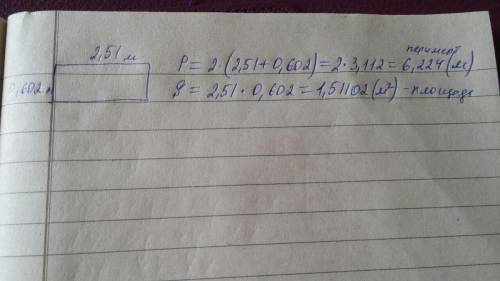 2,51 м
периметр
P = 2·(2,51+0,602) = 2·3,112 = 6,224 (м)
0,602 м
S = 2,51·0,602 = 1,51102 (м²) - площадь